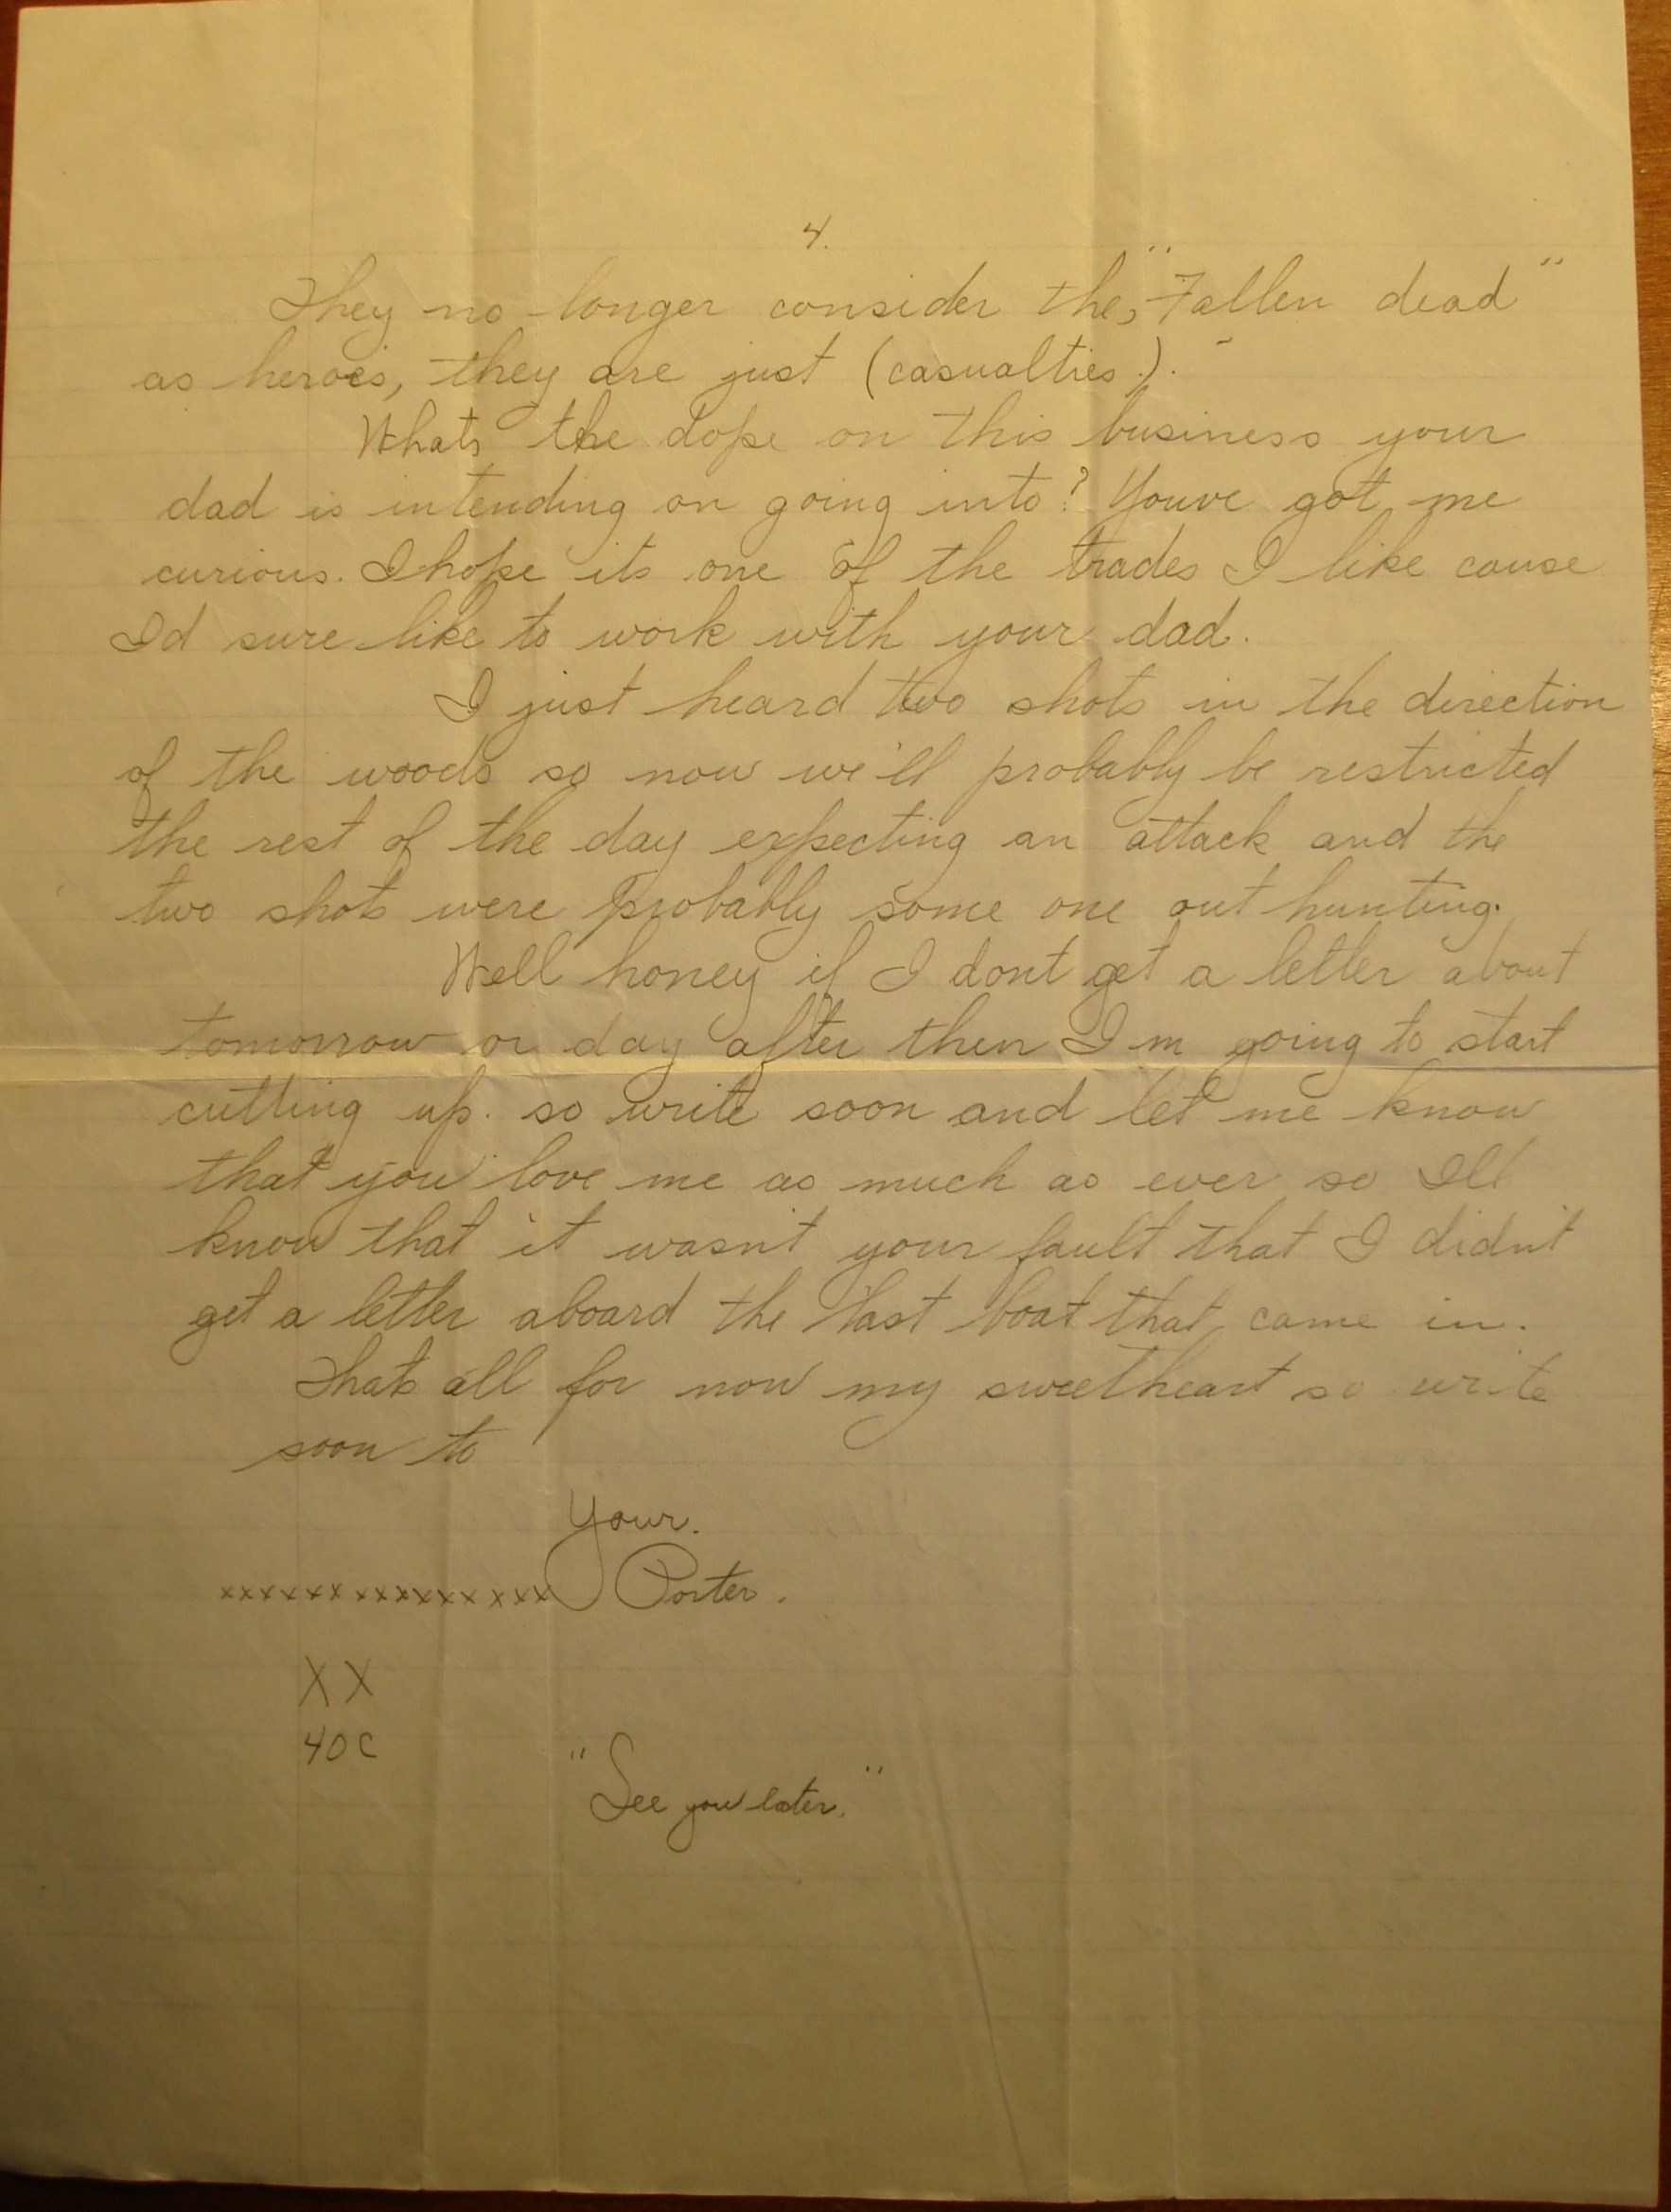 4.
They no longer consider the, "Fallen dead"
as heroes, they are just (casualties.).
Whats the dope on this business your
dad is intending on going into? Youve got me
curious. I hope its one of the trades I like cause
Id sure like to work with your dad.
I just heard two shots in the direction
of the woods so now we'll probably be restricted
the rest of the day expecting an attack and the
two shots were probably some one out hunting.
Well honey if I dont get a letter about
tomorrow or day after then I'm going to start
cutting up. so write soon and let me know
that you love me as much as ever so Ill
know that it wasn't your fault that I didn't
get a letter aboard the last boat that came in.
Thats all for now my sweetheart so write
soon to
Your.
xxxxxxxxxxxxxxxx Porter.
XX
40C
"See you later."